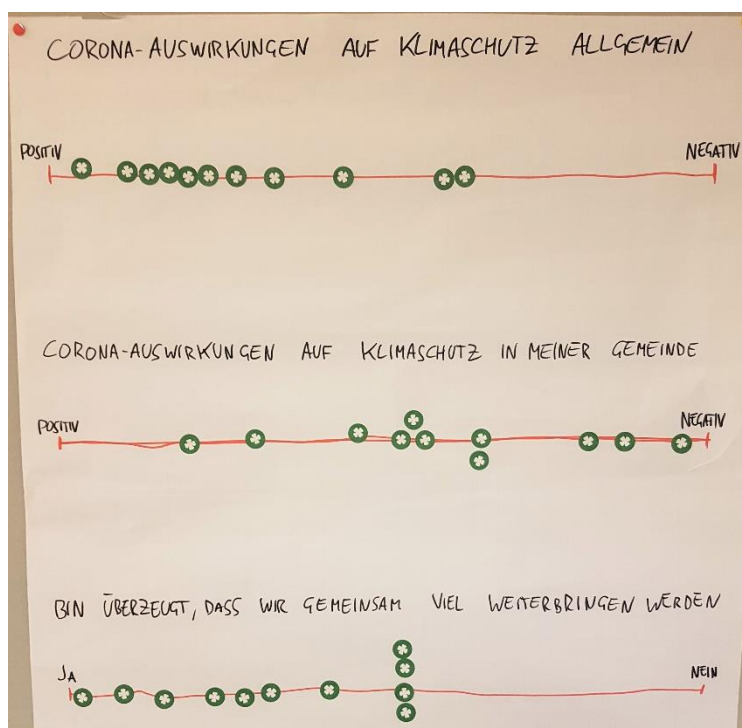 CORONA-AUSWIRKUNGEN AUF KLIMASCHUTZ ALLGEMEIN
POSITIV NEGATIV
CORONA-AUSWIRKUNGEN AUF KLIMASCHUTZ IN MEINER GEMEINDE
POSITIV NEGATIV
BIN ÜBERZEUGT, DASS WIR GEMEINSAM VIEL WEITERBRINGEN WERDEN
JA NEIN